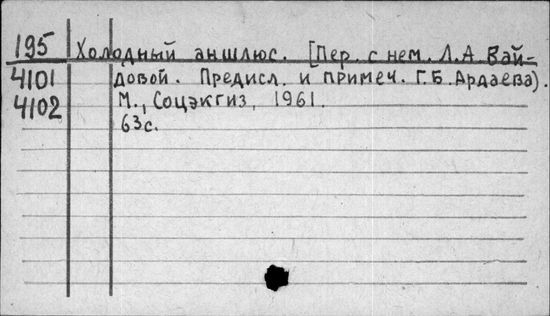 195 Холодный аншлюс. [Пер. с нем. Л.А Вай-
4101 довой. Предисл. и примеч. Г.Б Ардаева).
4102 М., Соцэкгиз, 1961.
63с.